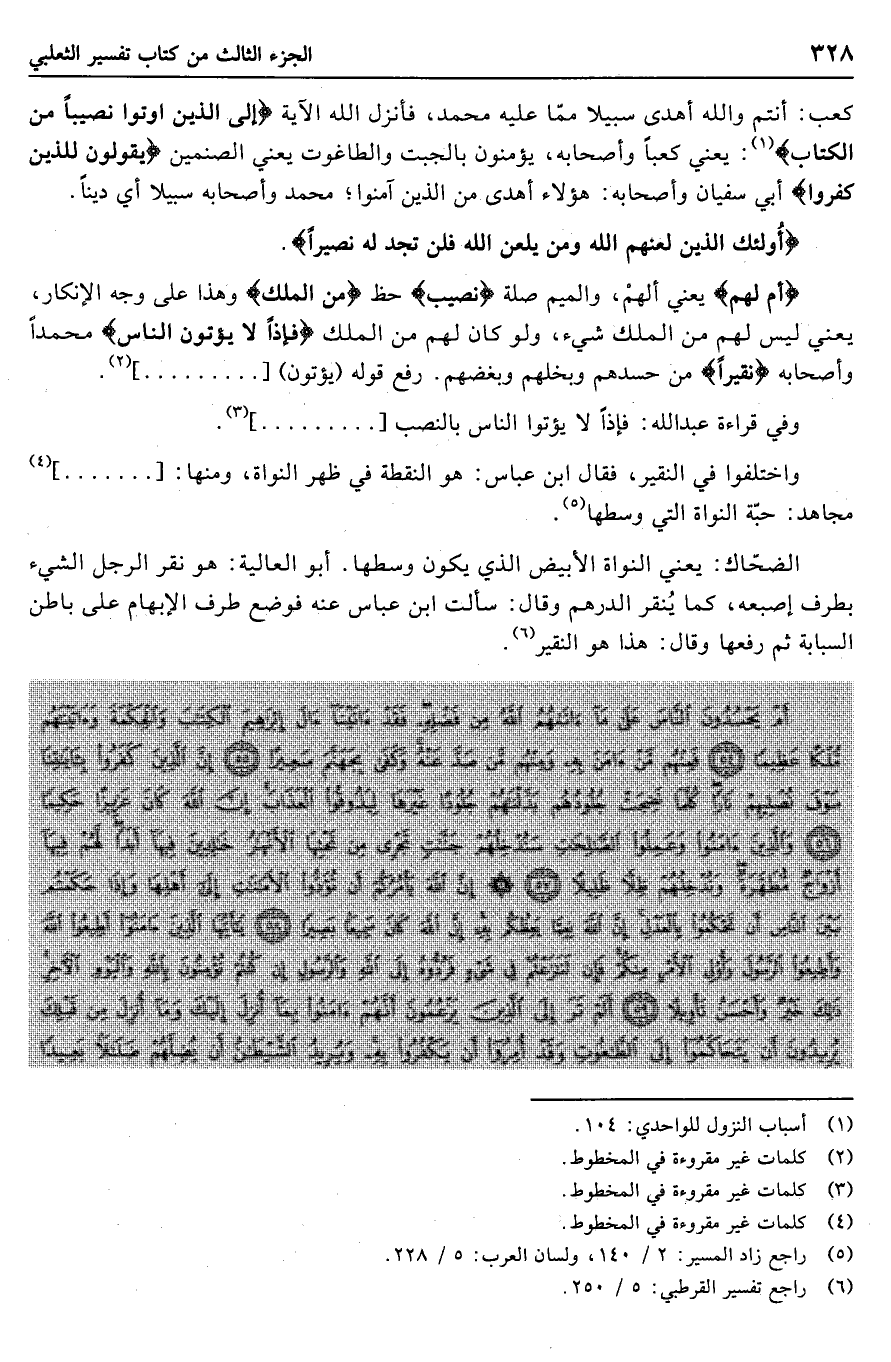 ٣٢٨ الجزء الثالث من كتاب تفسير الثعلبي
كعب: أنتم والله أهدى سبيلا ممّا عليه محمد، فأنزل الله الآية ﴿إلى الذين اوتوا نصيباً من
الكتاب﴾(١): يعني كعباً وأصحابه، يؤمنون بالجبت والطاغوت يعني الصنمين ﴿يقولون للذين
كفروا﴾ أبي سفيان وأصحابه: هؤلاء أهدى من الذين آمنوا؛ محمد وأصحابه سبيلا أي ديناً.
﴿أُولئك الذين لعنهم الله ومن يلعن الله فلن تجد له نصيراً﴾.
﴿أم لهم﴾ يعني ألهمْ، والميم صلة ﴿نصيب﴾ حظ ﴿من الملك﴾ وهذا على وجه الإنكار،
يعني ليس لهم من الملك شيء، ولو كان لهم من الملك ﴿فإذاً لا يؤتون الناس﴾ محمداً
وأصحابه ﴿نقيراً﴾ من حسدهم وبخلهم وبغضهم. رفع قوله (يؤتون) [.........](٢).
وفي قراءة عبدالله: فإذاً لا يؤتوا الناس بالنصب [.........](٣).
واختلفوا في النقير، فقال ابن عباس: هو النقطة في ظهر النواة، ومنها: [.......](٤)
مجاهد: حبّة النواة التي وسطها(٥).
الضحّاك: يعني النواة الأبيض الذي يكون وسطها. أبو العالية: هو نقر الرجل الشيء
بطرف إصبعه، كما يُنقر الدرهم وقال: سألت ابن عباس عنه فوضع طرف الإبهام على باطن
السبابة ثم رفعها وقال: هذا هو النقير(٦).
أَمْ يَحْسُدُونَ النَّاسَ عَلَىٰ مَا ءَاتَىٰهُمُ اللَّهُ مِن فَضْلِهِ فَقَدْ ءَاتَيْنَا ءَالَ إِبْرَٰهِيمَ الْكِتَٰبَ وَالْحِكْمَةَ وَءَاتَيْنَٰهُم
مُّلْكًا عَظِيمًا ﴿٥٤﴾ فَمِنْهُم مَّنْ ءَامَنَ بِهِ وَمِنْهُم مَّن صَدَّ عَنْهُ وَكَفَىٰ بِجَهَنَّمَ سَعِيرًا ﴿٥٥﴾ إِنَّ الَّذِينَ كَفَرُوا بِـَٔايَٰتِنَا
سَوْفَ نُصْلِيهِمْ نَارًا كُلَّمَا نَضِجَتْ جُلُودُهُم بَدَّلْنَٰهُمْ جُلُودًا غَيْرَهَا لِيَذُوقُوا الْعَذَابَ إِنَّ اللَّهَ كَانَ عَزِيزًا حَكِيمًا
﴿٥٦﴾ وَالَّذِينَ ءَامَنُوا وَعَمِلُوا الصَّٰلِحَٰتِ سَنُدْخِلُهُمْ جَنَّٰتٍ تَجْرِى مِن تَحْتِهَا الْأَنْهَٰرُ خَٰلِدِينَ فِيهَا أَبَدًا لَّهُمْ فِيهَا
أَزْوَٰجٌ مُّطَهَّرَةٌ وَنُدْخِلُهُمْ ظِلًّا ظَلِيلًا ﴿٥٧﴾ ۞ إِنَّ اللَّهَ يَأْمُرُكُمْ أَن تُؤَدُّوا الْأَمَٰنَٰتِ إِلَىٰ أَهْلِهَا وَإِذَا حَكَمْتُم
بَيْنَ النَّاسِ أَن تَحْكُمُوا بِالْعَدْلِ إِنَّ اللَّهَ نِعِمَّا يَعِظُكُم بِهِ إِنَّ اللَّهَ كَانَ سَمِيعًا بَصِيرًا ﴿٥٨﴾ يَٰٓأَيُّهَا الَّذِينَ ءَامَنُوا أَطِيعُوا اللَّهَ
وَأَطِيعُوا الرَّسُولَ وَأُولِى الْأَمْرِ مِنكُمْ فَإِن تَنَٰزَعْتُمْ فِى شَىْءٍ فَرُدُّوهُ إِلَى اللَّهِ وَالرَّسُولِ إِن كُنتُمْ تُؤْمِنُونَ بِاللَّهِ وَالْيَوْمِ الْءَاخِرِ
ذَٰلِكَ خَيْرٌ وَأَحْسَنُ تَأْوِيلًا ﴿٥٩﴾ أَلَمْ تَرَ إِلَى الَّذِينَ يَزْعُمُونَ أَنَّهُمْ ءَامَنُوا بِمَا أُنزِلَ إِلَيْكَ وَمَا أُنزِلَ مِن قَبْلِكَ
يُرِيدُونَ أَن يَتَحَاكَمُوا إِلَى الطَّٰغُوتِ وَقَدْ أُمِرُوا أَن يَكْفُرُوا بِهِ وَيُرِيدُ الشَّيْطَٰنُ أَن يُضِلَّهُمْ ضَلَٰلًا بَعِيدًا
(١) أسباب النزول للواحدي: ١٠٤.
(٢) كلمات غير مقروءة في المخطوط.
(٣) كلمات غير مقروءة في المخطوط.
(٤) كلمات غير مقروءة في المخطوط.
(٥) راجع زاد المسير: ٢ / ١٤٠، ولسان العرب: ٥ / ٢٢٨.
(٦) راجع تفسير القرطبي: ٥ / ٢٥٠.